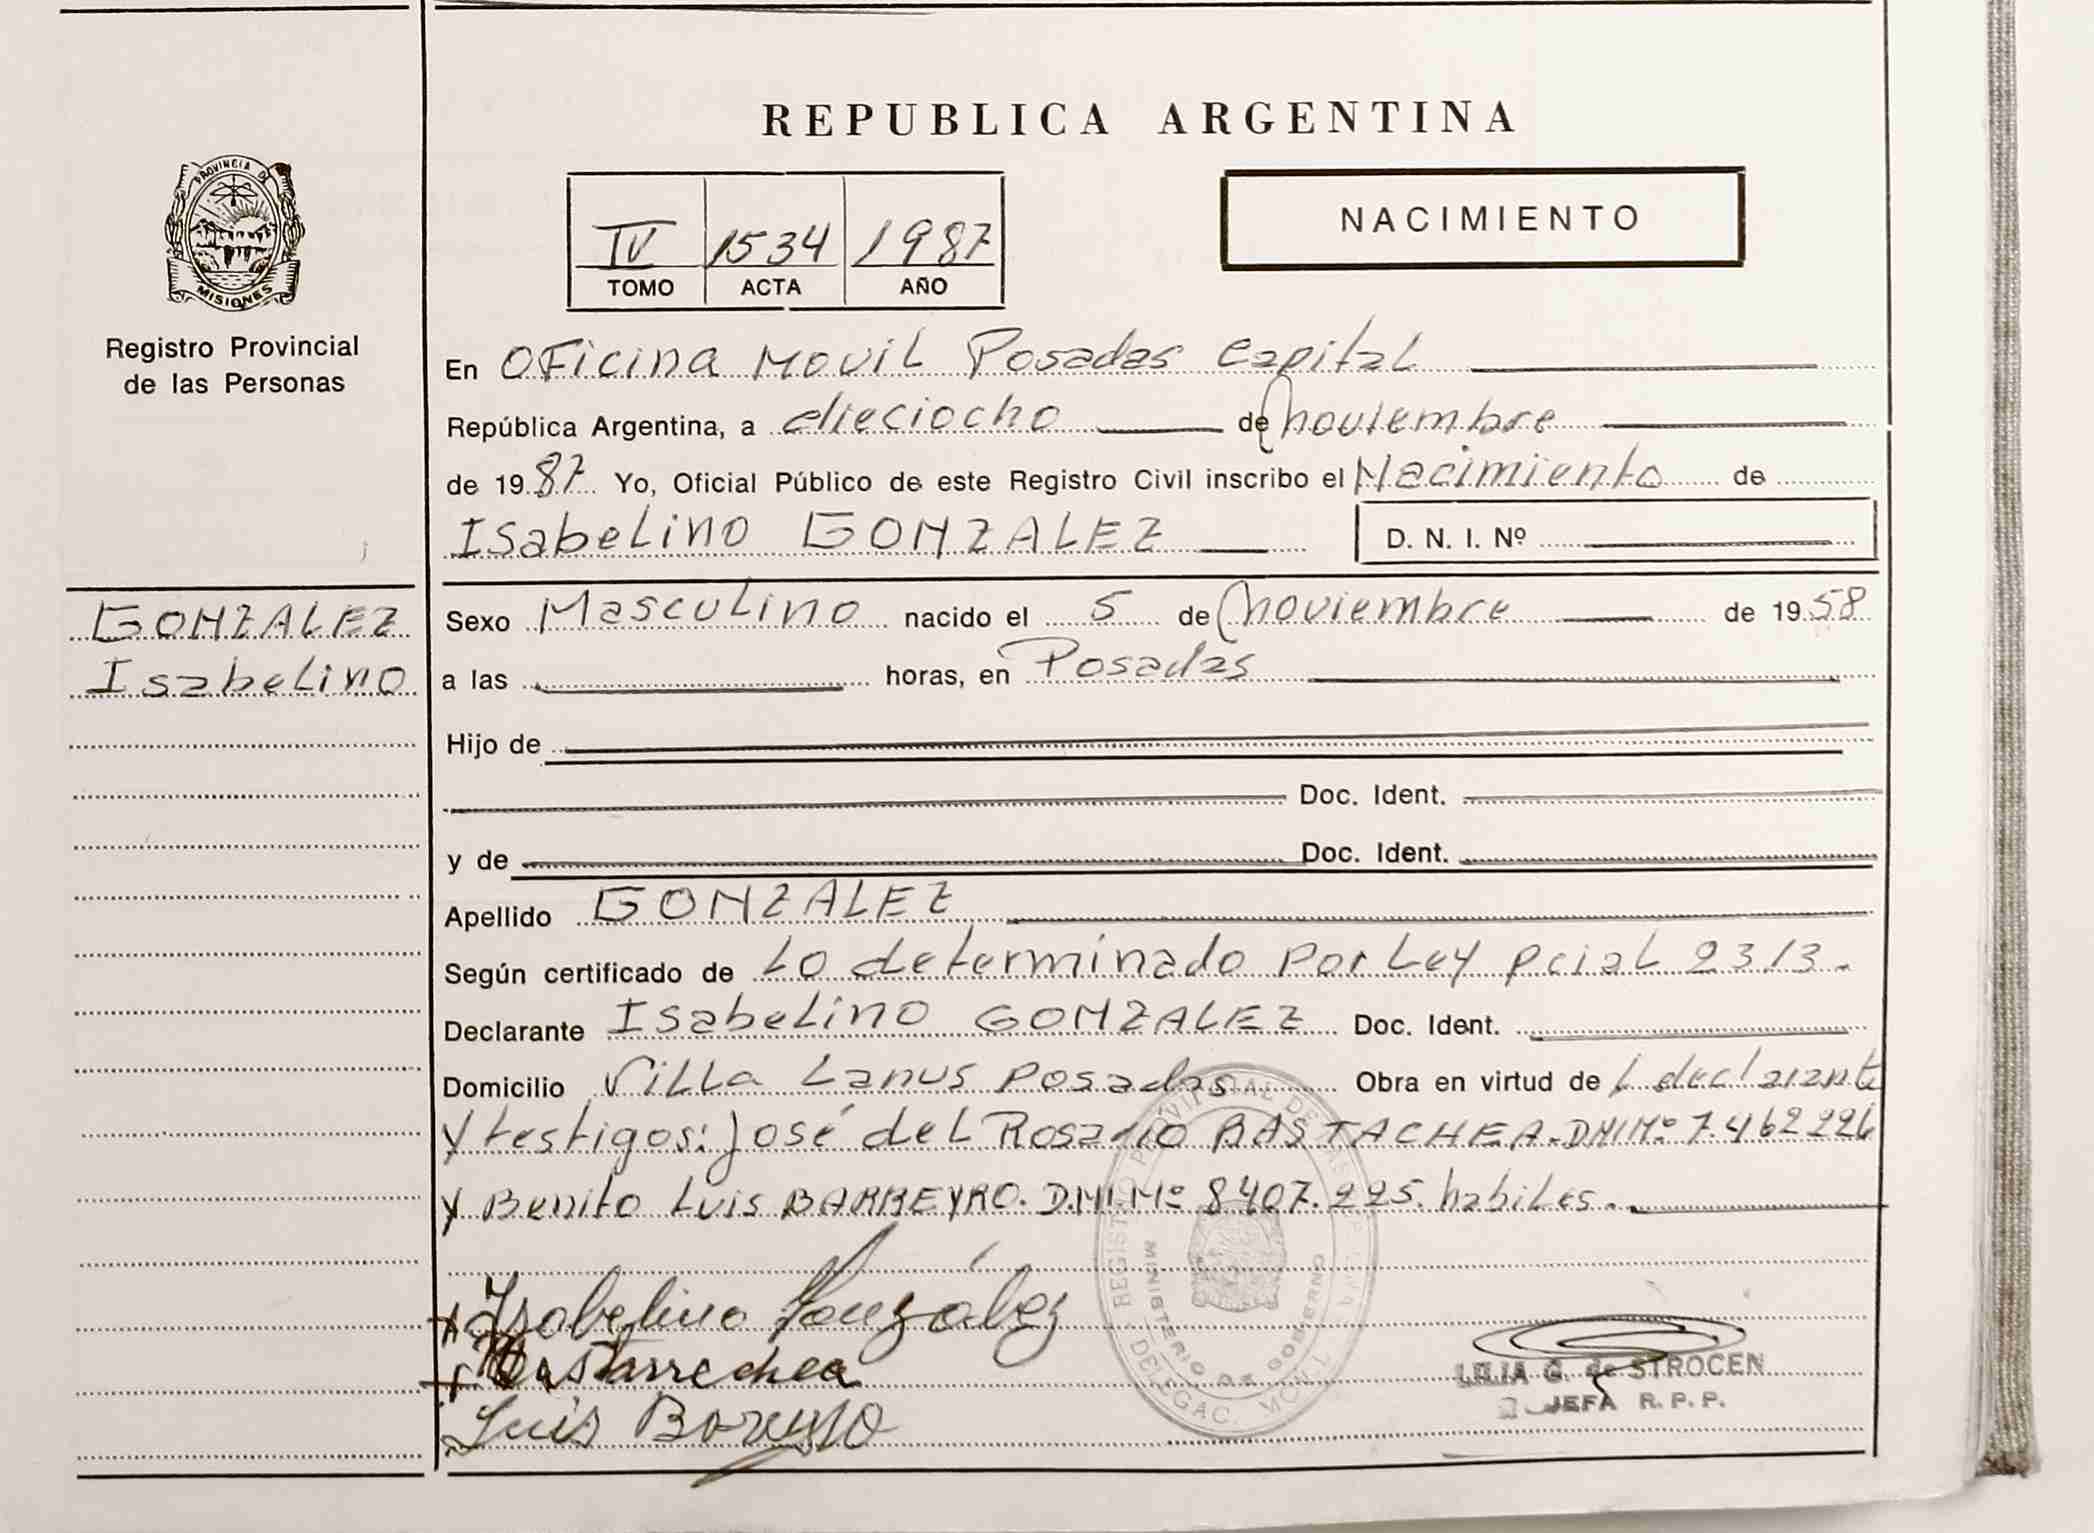 REPUBLICA ARGENTINA
PROVINCIA D
MISIONES
Registro Provincial
de las Personas
IV 1534 1987
TOMO ACTA AÑO
NACIMIENTO
En OFicina Movil Posadas Capital
República Argentina, a dieciocho de noviembre
de 1987 Yo, Oficial Público de este Registro Civil inscribo el Nacimiento de
Isabelino GONZALEZ D. N. I. Nº
GONZALEZ
Isabelino
Sexo Masculino nacido el 5 de noviembre de 1958
a las horas, en Posadas
Hijo de
Doc. Ident.
y de Doc. Ident.
Apellido GONZALEZ
Según certificado de Lo determinado por Ley pcial 2313.
Declarante Isabelino GONZALEZ Doc. Ident.
Domicilio Villa Lanus Posadas Obra en virtud de L declarante
y testigos: José del Rosario BASTACHEA. DNI Nº 7.462226
y Benito Luis BARREYRO. D.N.I. Nº 8407.225. habiles.
Isabelino González
Bastarrechea
Luis Bareyro
REGISTRO PROVINCIAL DE LAS PERSONAS
MINISTERIO DE GOBIERNO
DELEGAC. MOVIL
LELIA G. de STROCEN
JEFA R. P. P.